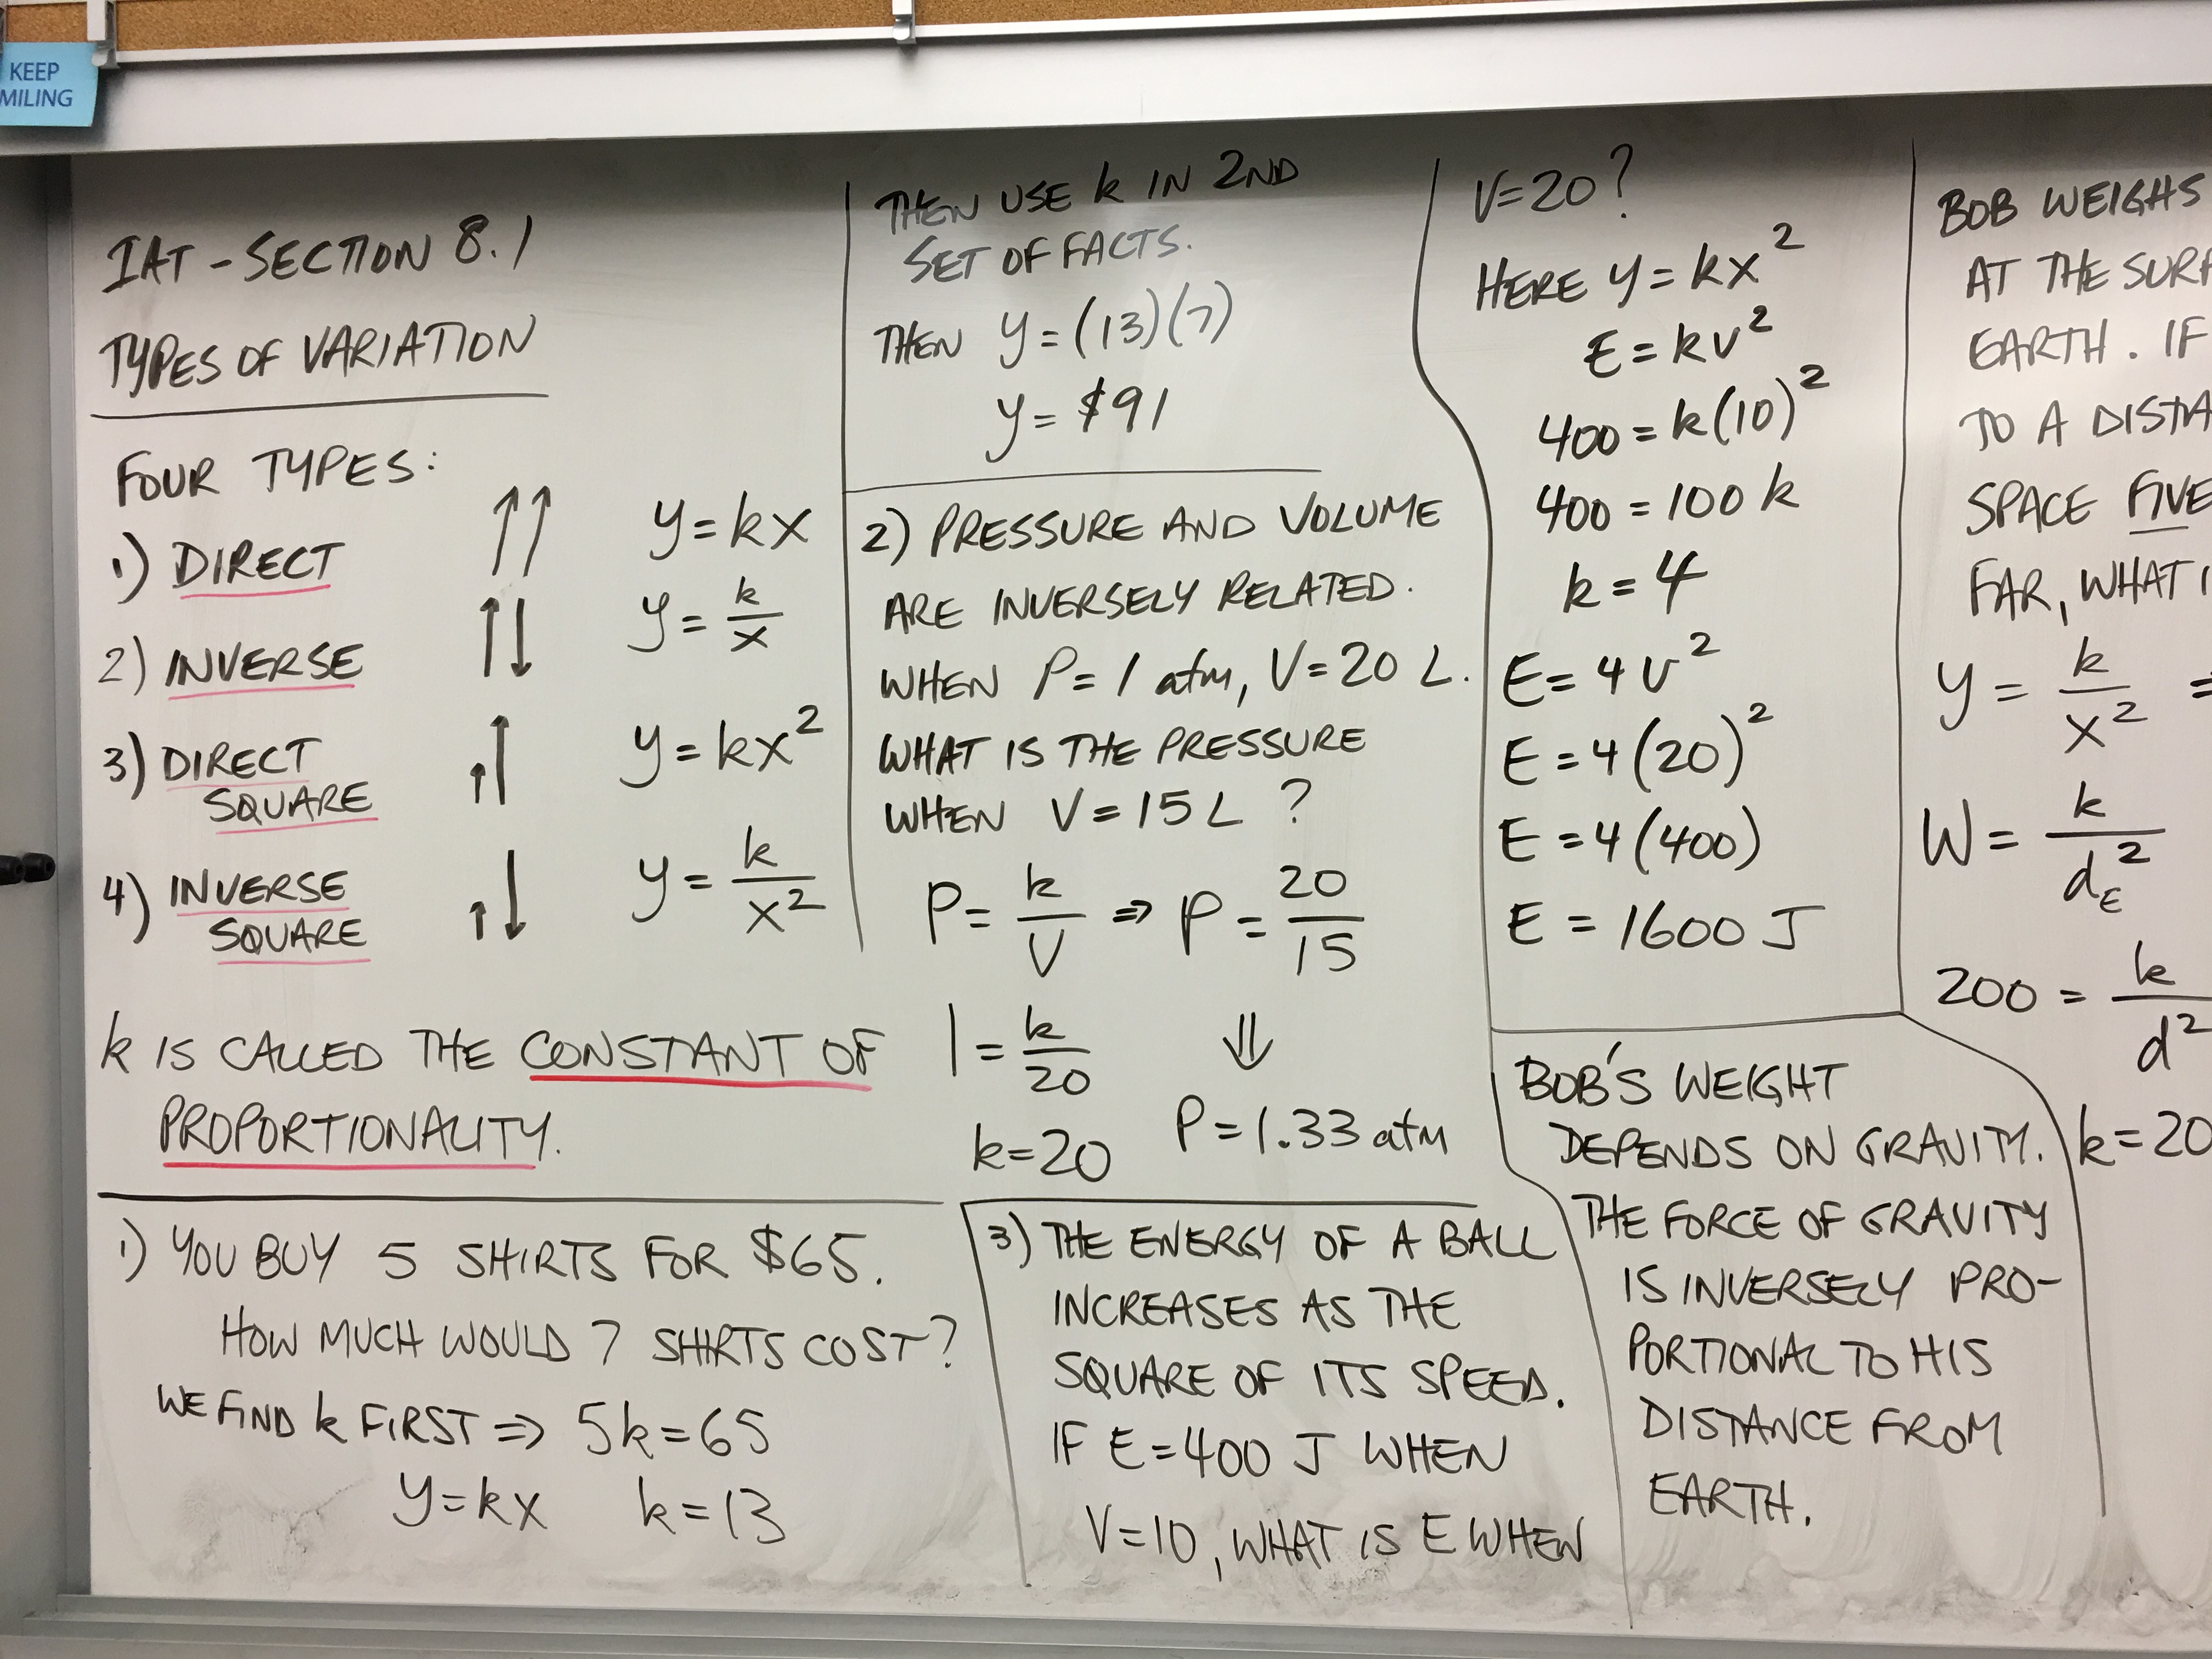 KEEP
MILING
IAT - SECTION 8.1
TYPES OF VARIATION
FOUR TYPES:
1) DIRECT ↑↑ y = kx
2) INVERSE ↑↓ y = k/x
3) DIRECT SQUARE ↑↑ y = kx²
4) INVERSE SQUARE ↑↓ y = k/x²
k IS CALLED THE CONSTANT OF
PROPORTIONALITY.
1) YOU BUY 5 SHIRTS FOR $65.
HOW MUCH WOULD 7 SHIRTS COST?
WE FIND k FIRST ⇒ 5k = 65
y = kx k = 13
THEN USE k IN 2ND
SET OF FACTS.
THEN y = (13)(7)
y = $91
2) PRESSURE AND VOLUME
ARE INVERSELY RELATED.
WHEN P = 1 atm, V = 20 L.
WHAT IS THE PRESSURE
WHEN V = 15 L ?
P = k/V ⇒ P = 20/15
1 = k/20 ⇓
k = 20 P = 1.33 atm
3) THE ENERGY OF A BALL
INCREASES AS THE
SQUARE OF ITS SPEED.
IF E = 400 J WHEN
V = 10, WHAT IS E WHEN
V = 20?
HERE y = kx²
E = kv²
400 = k(10)²
400 = 100 k
k = 4
E = 4v²
E = 4(20)²
E = 4(400)
E = 1600 J
BOB'S WEIGHT
DEPENDS ON GRAVITY.
THE FORCE OF GRAVITY
IS INVERSELY PRO-
PORTIONAL TO HIS
DISTANCE FROM
EARTH.
BOB WEIGHS
AT THE SURF
EARTH. IF
TO A DISTA
SPACE FIVE
FAR, WHAT I
y = k/x² =
W = k/d_E²
200 = k/d²
k = 20